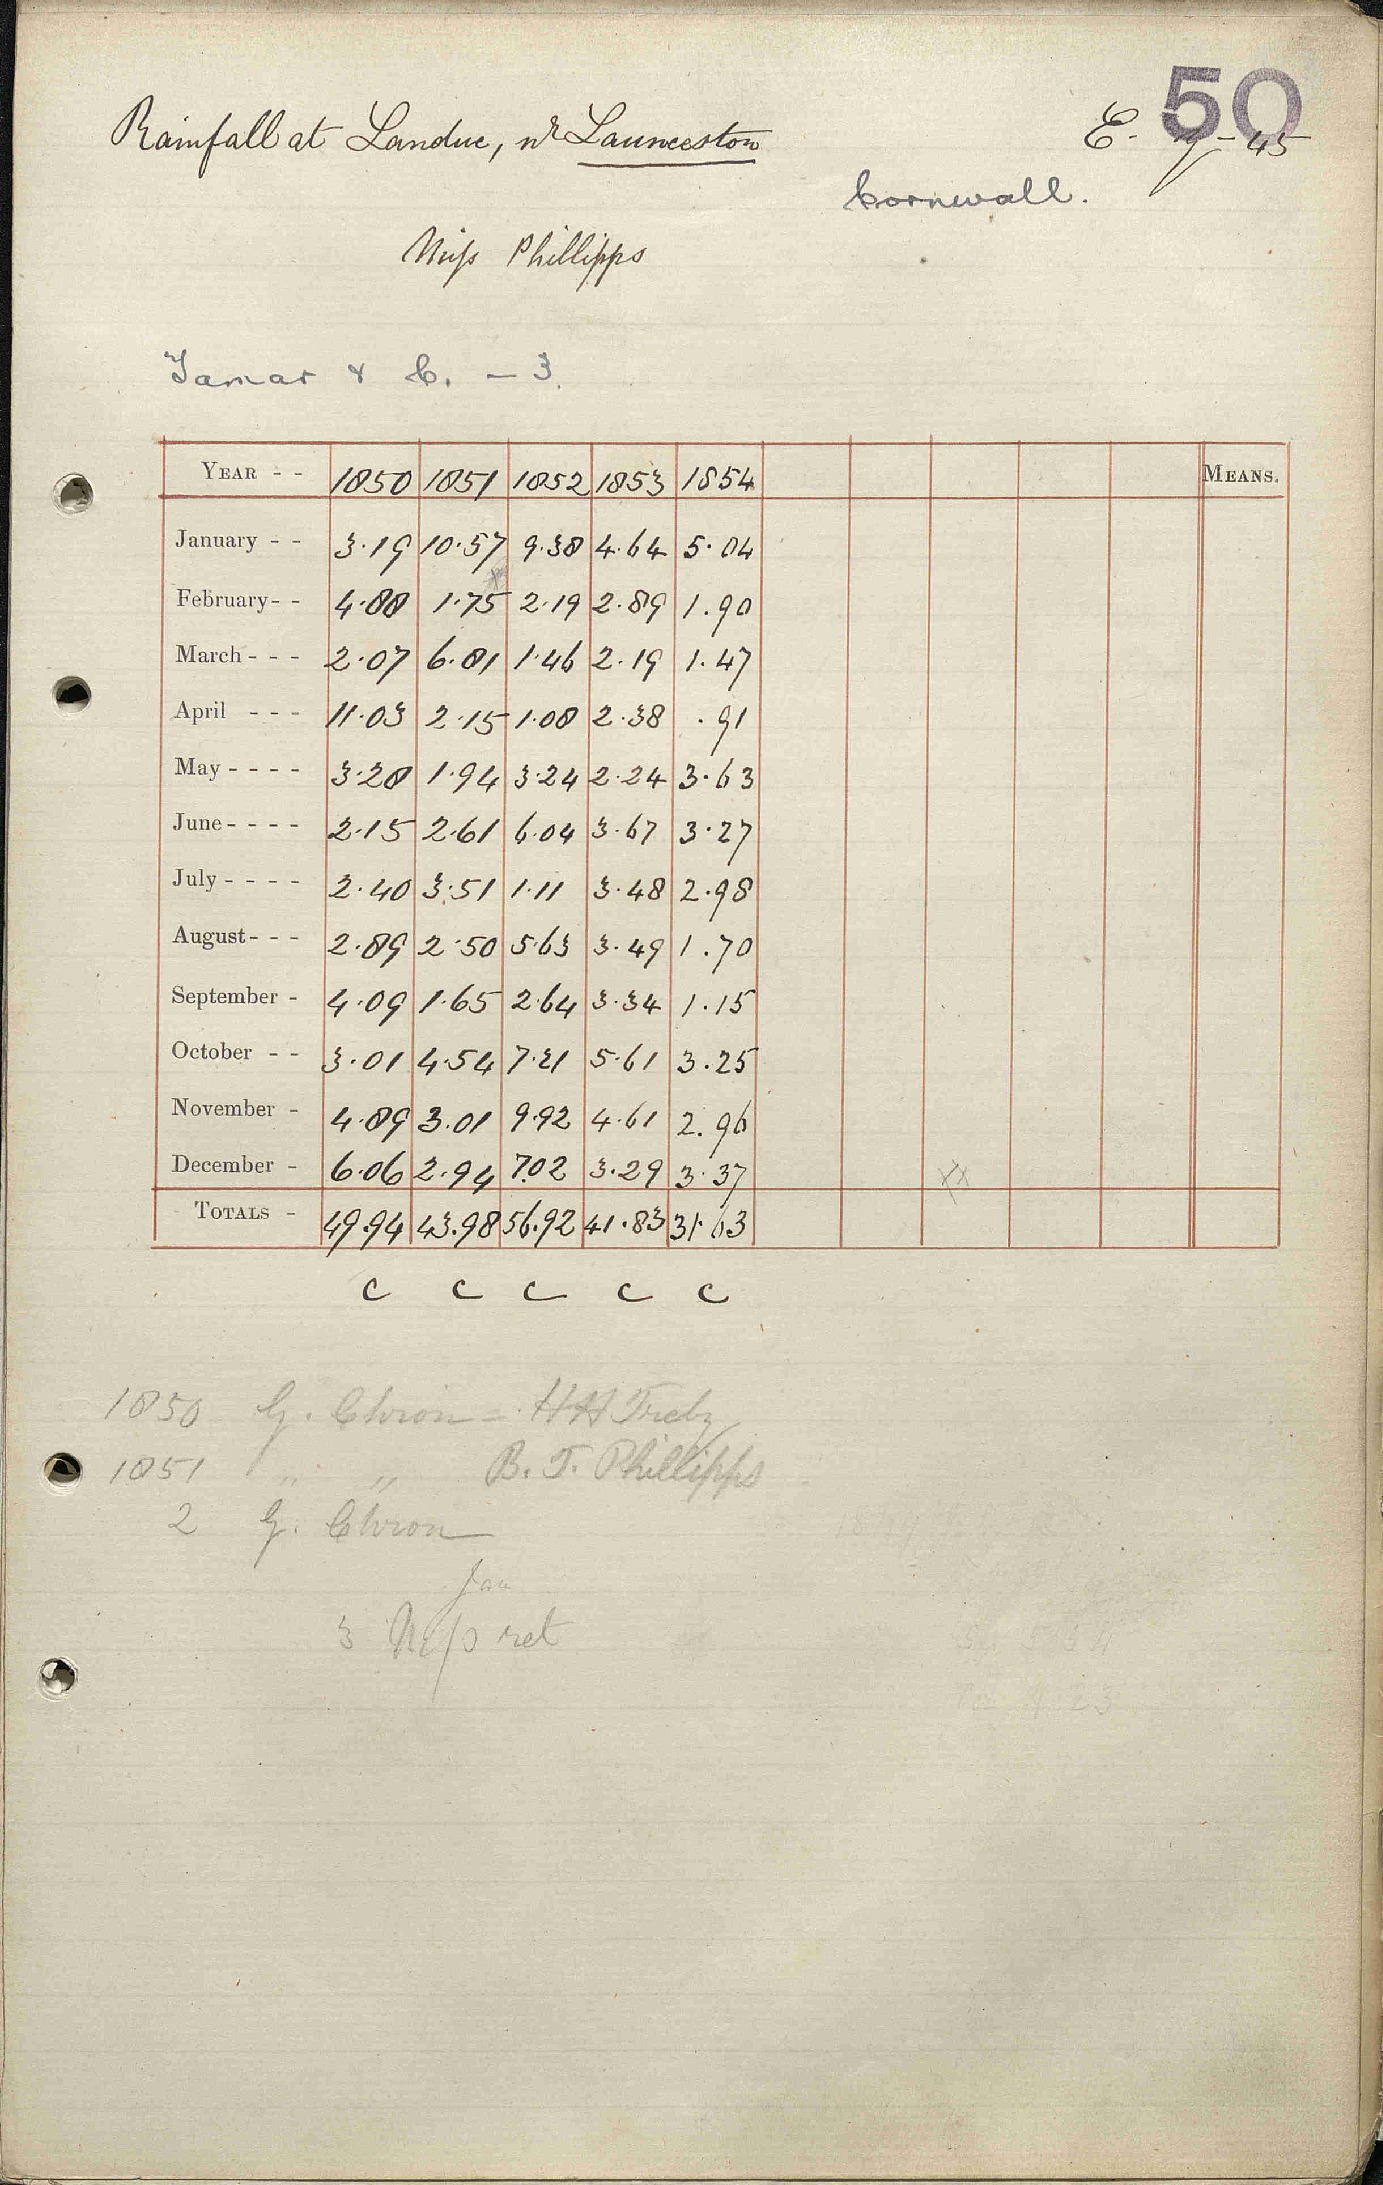 50
Rainfall at Landue, nr Launceston E. 9-45
Cornwall.
Miss Phillipps
Tamar & C. - 3.
YEAR - - 1850 1851 1852 1853 1854 MEANS.
January - - 3.19 10.57 9.38 4.64 5.04
February - - 4.88 1.75 2.19 2.89 1.90
March - - - 2.07 6.81 1.46 2.19 1.47
April - - - 11.03 2.15 1.08 2.38 .91
May - - - - 3.28 1.94 3.24 2.24 3.63
June - - - - 2.15 2.61 6.04 3.67 3.27
July - - - - 2.40 3.51 1.11 3.48 2.98
August - - - 2.89 2.50 5.63 3.49 1.70
September - 4.09 1.65 2.64 3.34 1.15
October - - 3.01 4.54 7.21 5.61 3.25
November - 4.89 3.01 9.92 4.61 2.96
December - 6.06 2.94 7.02 3.29 3.37
TOTALS - 49.94 43.98 56.92 41.83 31.63
C C C C C
1850 G. Chron = HH
1851 " " B. T. Phillipps
2 G. Chron
Jan
3 ret